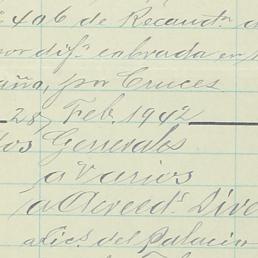 406 de Recaudn.
por dif.ª cobrada en
por Cruces
28, Feb. 1942
Generales
a Varios
a Acreeds. Dive
a Lic. del Palacio